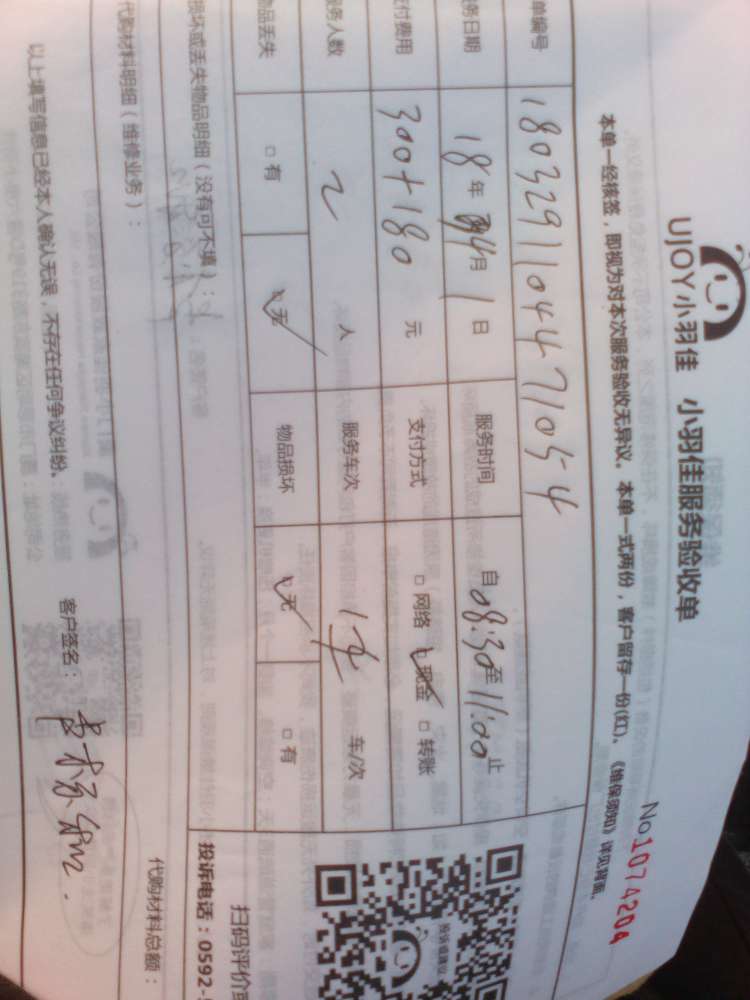 UJOY小羽佳 小羽佳服务验收单
No1074204
本单一经核签，即视为对本次服务验收无异议。本单一式两份，客户留存一份(红)。《维保须知》详见背面。
单编号 1803291104471054
务日期 18年4月1日 服务时间 自08:30至11:00止
支付费用 300+180元 支付方式 □网络 □现金 □转账
服务人数 2人 服务车次 1 车/次
物品丢失 □有 □无 物品损坏 □无 □有
损坏或丢失物品明细（没有可不填）：
代购材料明细（维修业务）：
代购材料总额：
以上填写信息已经本人确认无误，不存在任何争议纠纷。 客户签名：
投诉建议
扫码评价
投诉电话：0592-5